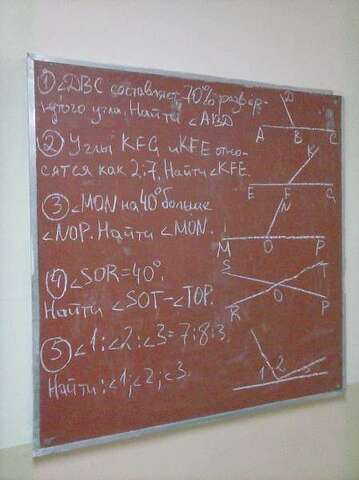 ① ∠DBC составляет 70% развёр-
нутого угла. Найти ∠ABD
D
A B C
② Углы KFG и KFE отно-
сятся как 2:7. Найти ∠KFE.
K
E F G
③ ∠MON на 40° больше
∠NOP. Найти ∠MON.
N
M O P
④ ∠SOR = 40°.
Найти ∠SOT - ∠TOP.
S T
O
R P
⑤ ∠1:∠2:∠3 = 7:8:3.
Найти: ∠1; ∠2; ∠3.
1 2 3